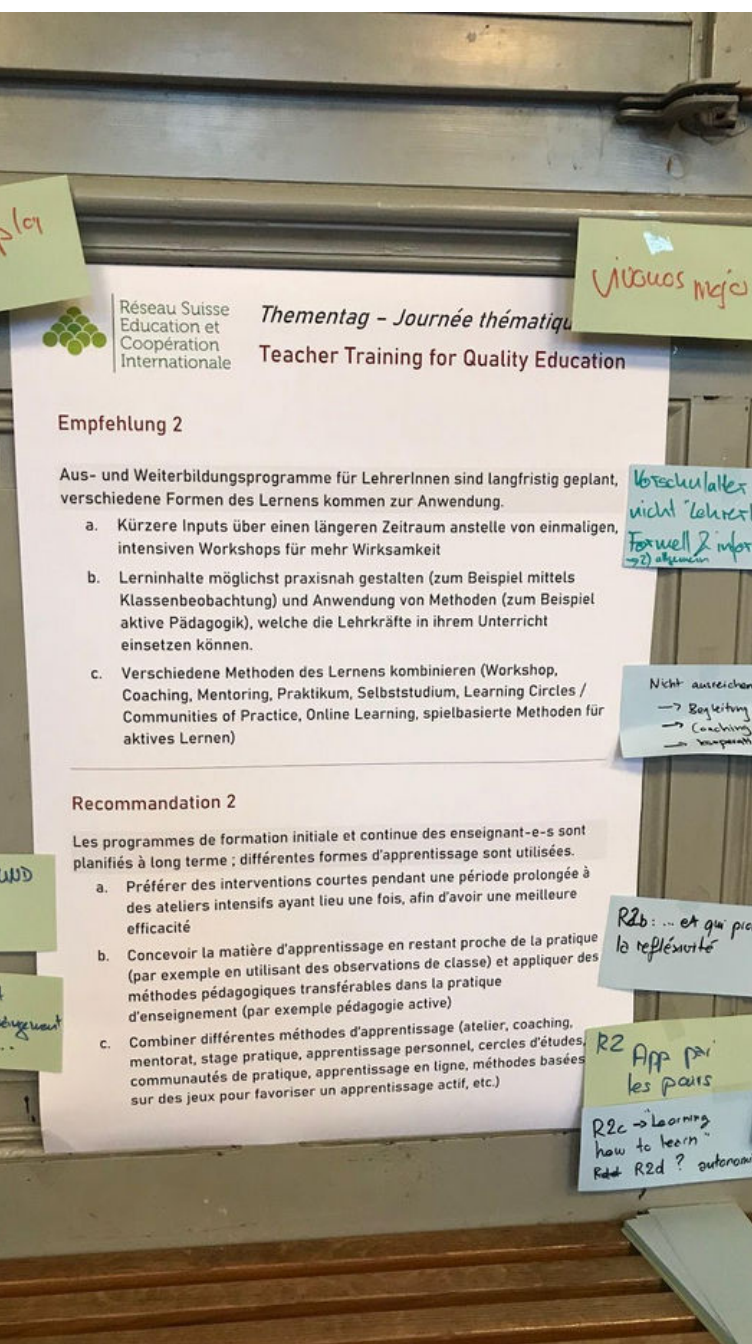 Réseau Suisse
Education et
Coopération
Internationale
Thementag – Journée thématiqu
Teacher Training for Quality Education
Empfehlung 2
Aus- und Weiterbildungsprogramme für LehrerInnen sind langfristig geplant,
verschiedene Formen des Lernens kommen zur Anwendung.
a. Kürzere Inputs über einen längeren Zeitraum anstelle von einmaligen,
intensiven Workshops für mehr Wirksamkeit
b. Lerninhalte möglichst praxisnah gestalten (zum Beispiel mittels
Klassenbeobachtung) und Anwendung von Methoden (zum Beispiel
aktive Pädagogik), welche die Lehrkräfte in ihrem Unterricht
einsetzen können.
c. Verschiedene Methoden des Lernens kombinieren (Workshop,
Coaching, Mentoring, Praktikum, Selbststudium, Learning Circles /
Communities of Practice, Online Learning, spielbasierte Methoden für
aktives Lernen)
Recommandation 2
Les programmes de formation initiale et continue des enseignant-e-s sont
planifiés à long terme ; différentes formes d'apprentissage sont utilisées.
a. Préférer des interventions courtes pendant une période prolongée à
des ateliers intensifs ayant lieu une fois, afin d'avoir une meilleure
efficacité
b. Concevoir la matière d'apprentissage en restant proche de la pratique
(par exemple en utilisant des observations de classe) et appliquer des
méthodes pédagogiques transférables dans la pratique
d'enseignement (par exemple pédagogie active)
c. Combiner différentes méthodes d'apprentissage (atelier, coaching,
mentorat, stage pratique, apprentissage personnel, cercles d'études,
communautés de pratique, apprentissage en ligne, méthodes basées
sur des jeux pour favoriser un apprentissage actif, etc.)
Vorschulalter
nicht "Lehrer
Formell &
→ 2) allgemein
Nicht ausreichen
→ Begleitung
→ Coaching
UND
R2b: ... et qui
la refléxivité
R2 App
les pairs
R2c → "Learning
how to learn"
R2d ? autonom